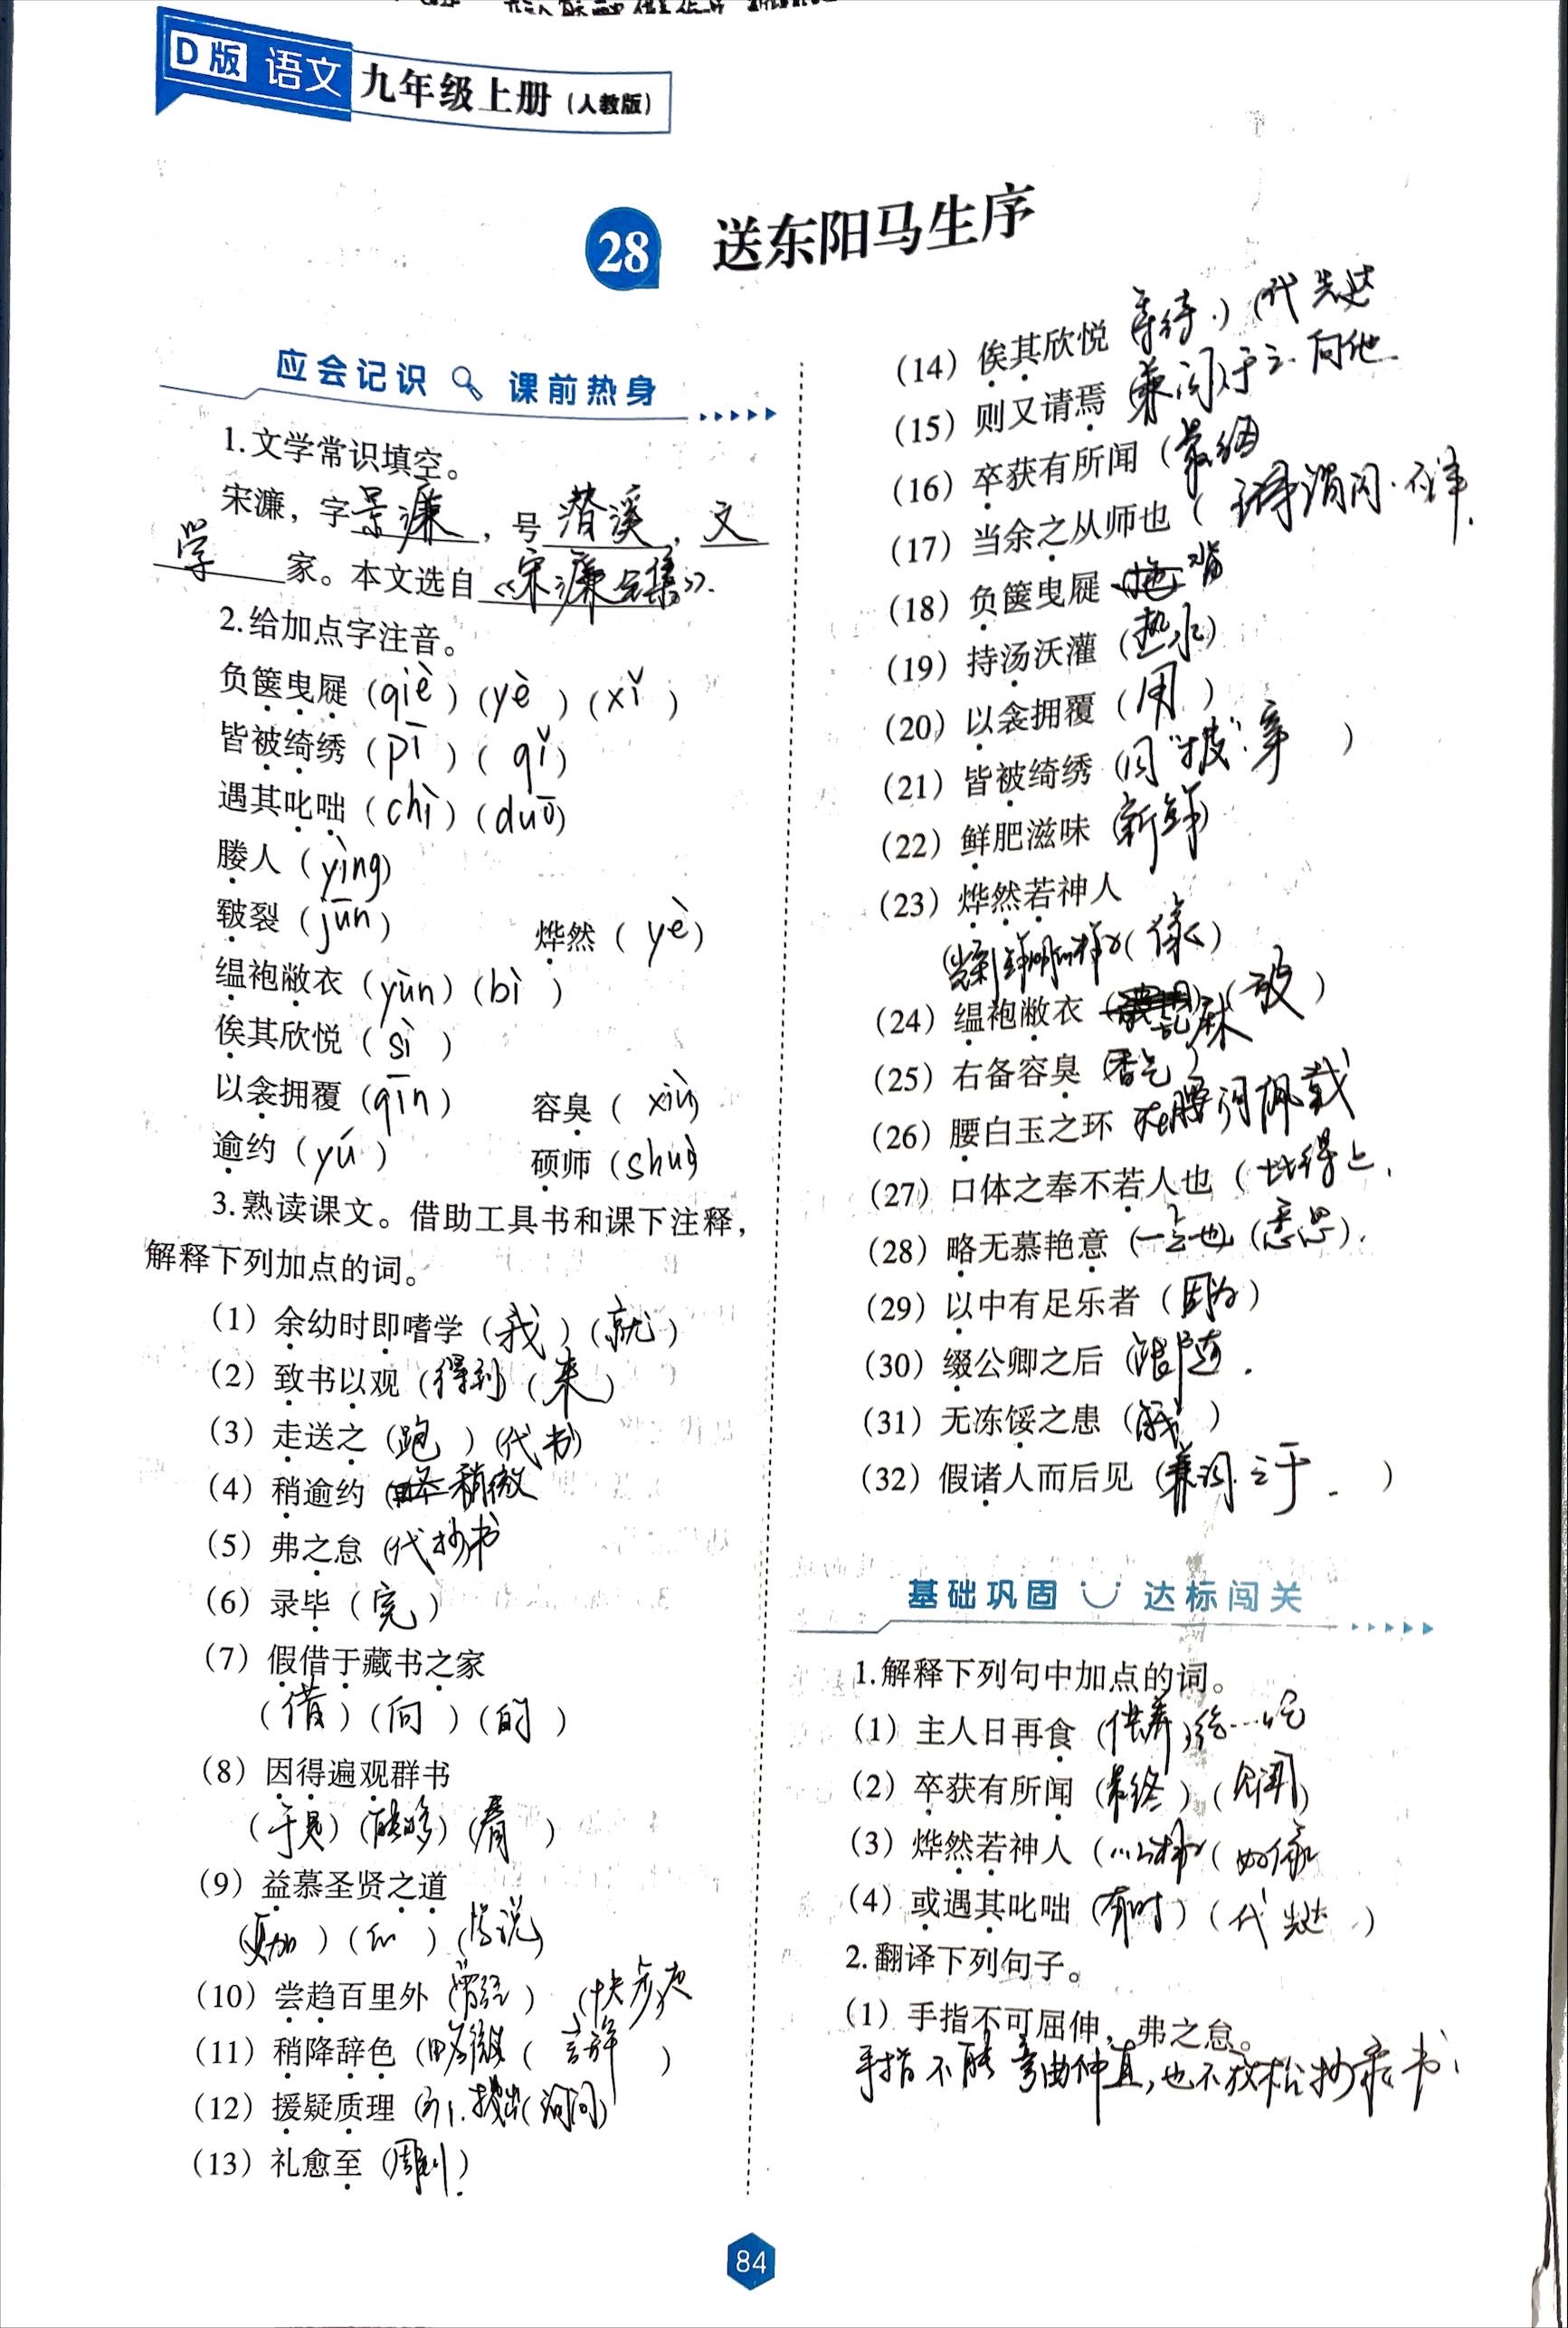 D版 语文 九年级上册（人教版）
28 送东阳马生序
应会记识 课前热身
1.文学常识填空。
宋濂，字景濂，号潜溪，文
学家。本文选自《宋濂全集》.
2.给加点字注音。
负箧曳屣（qiè）（yè）（xǐ）
皆被绮绣（pī）（qǐ）
遇其叱咄（chì）（duō）
媵人（yìng）
皲裂（jūn） 烨然（yè）
缊袍敝衣（yùn）（bì）
俟其欣悦（sì）
以衾拥覆（qīn） 容臭（xiù）
逾约（yú） 硕师（shuò）
3.熟读课文。借助工具书和课下注释，
解释下列加点的词。
（1）余幼时即嗜学（我）（就）
（2）致书以观（得到）（来）
（3）走送之（跑）（代书）
（4）稍逾约（稍微
（5）弗之怠（代抄书
（6）录毕（完）
（7）假借于藏书之家
（借）（向）（的）
（8）因得遍观群书
（于是）（能够）（看）
（9）益慕圣贤之道
（更加）（的）（学说）
（10）尝趋百里外（曾经）（快步走
（11）稍降辞色（略微（言辞）
（12）援疑质理（引.提出（询问）
（13）礼愈至（周到）.
（14）俟其欣悦 等待.）（代先达
（15）则又请焉 兼词）于之.向他
（16）卒获有所闻（最终
（17）当余之从师也（
（18）负箧曳屣 背
（19）持汤沃灌（热水）
（20）以衾拥覆（用）
（21）皆被绮绣（同“披”.穿）
（22）鲜肥滋味（新鲜）
（23）烨然若神人
（像）
（24）缊袍敝衣 麻（破）
（25）右备容臭（香气）
（26）腰白玉之环 在腰间佩戴
（27）口体之奉不若人也（比得上.
（28）略无慕艳意（一点也）（意思）.
（29）以中有足乐者（因为）
（30）缀公卿之后（跟随.
（31）无冻馁之患（饿）
（32）假诸人而后见（兼词.之于.）
基础巩固 达标闯关
1.解释下列句中加点的词。
（1）主人日再食（供养）给…吃
（2）卒获有所闻（最终）（见闻）
（3）烨然若神人（…的样子（好像
（4）或遇其叱咄（有时）（代先达）
2.翻译下列句子。
（1）手指不可屈伸，弗之怠。
手指不能弯曲伸直，也不放松抄录书.
84